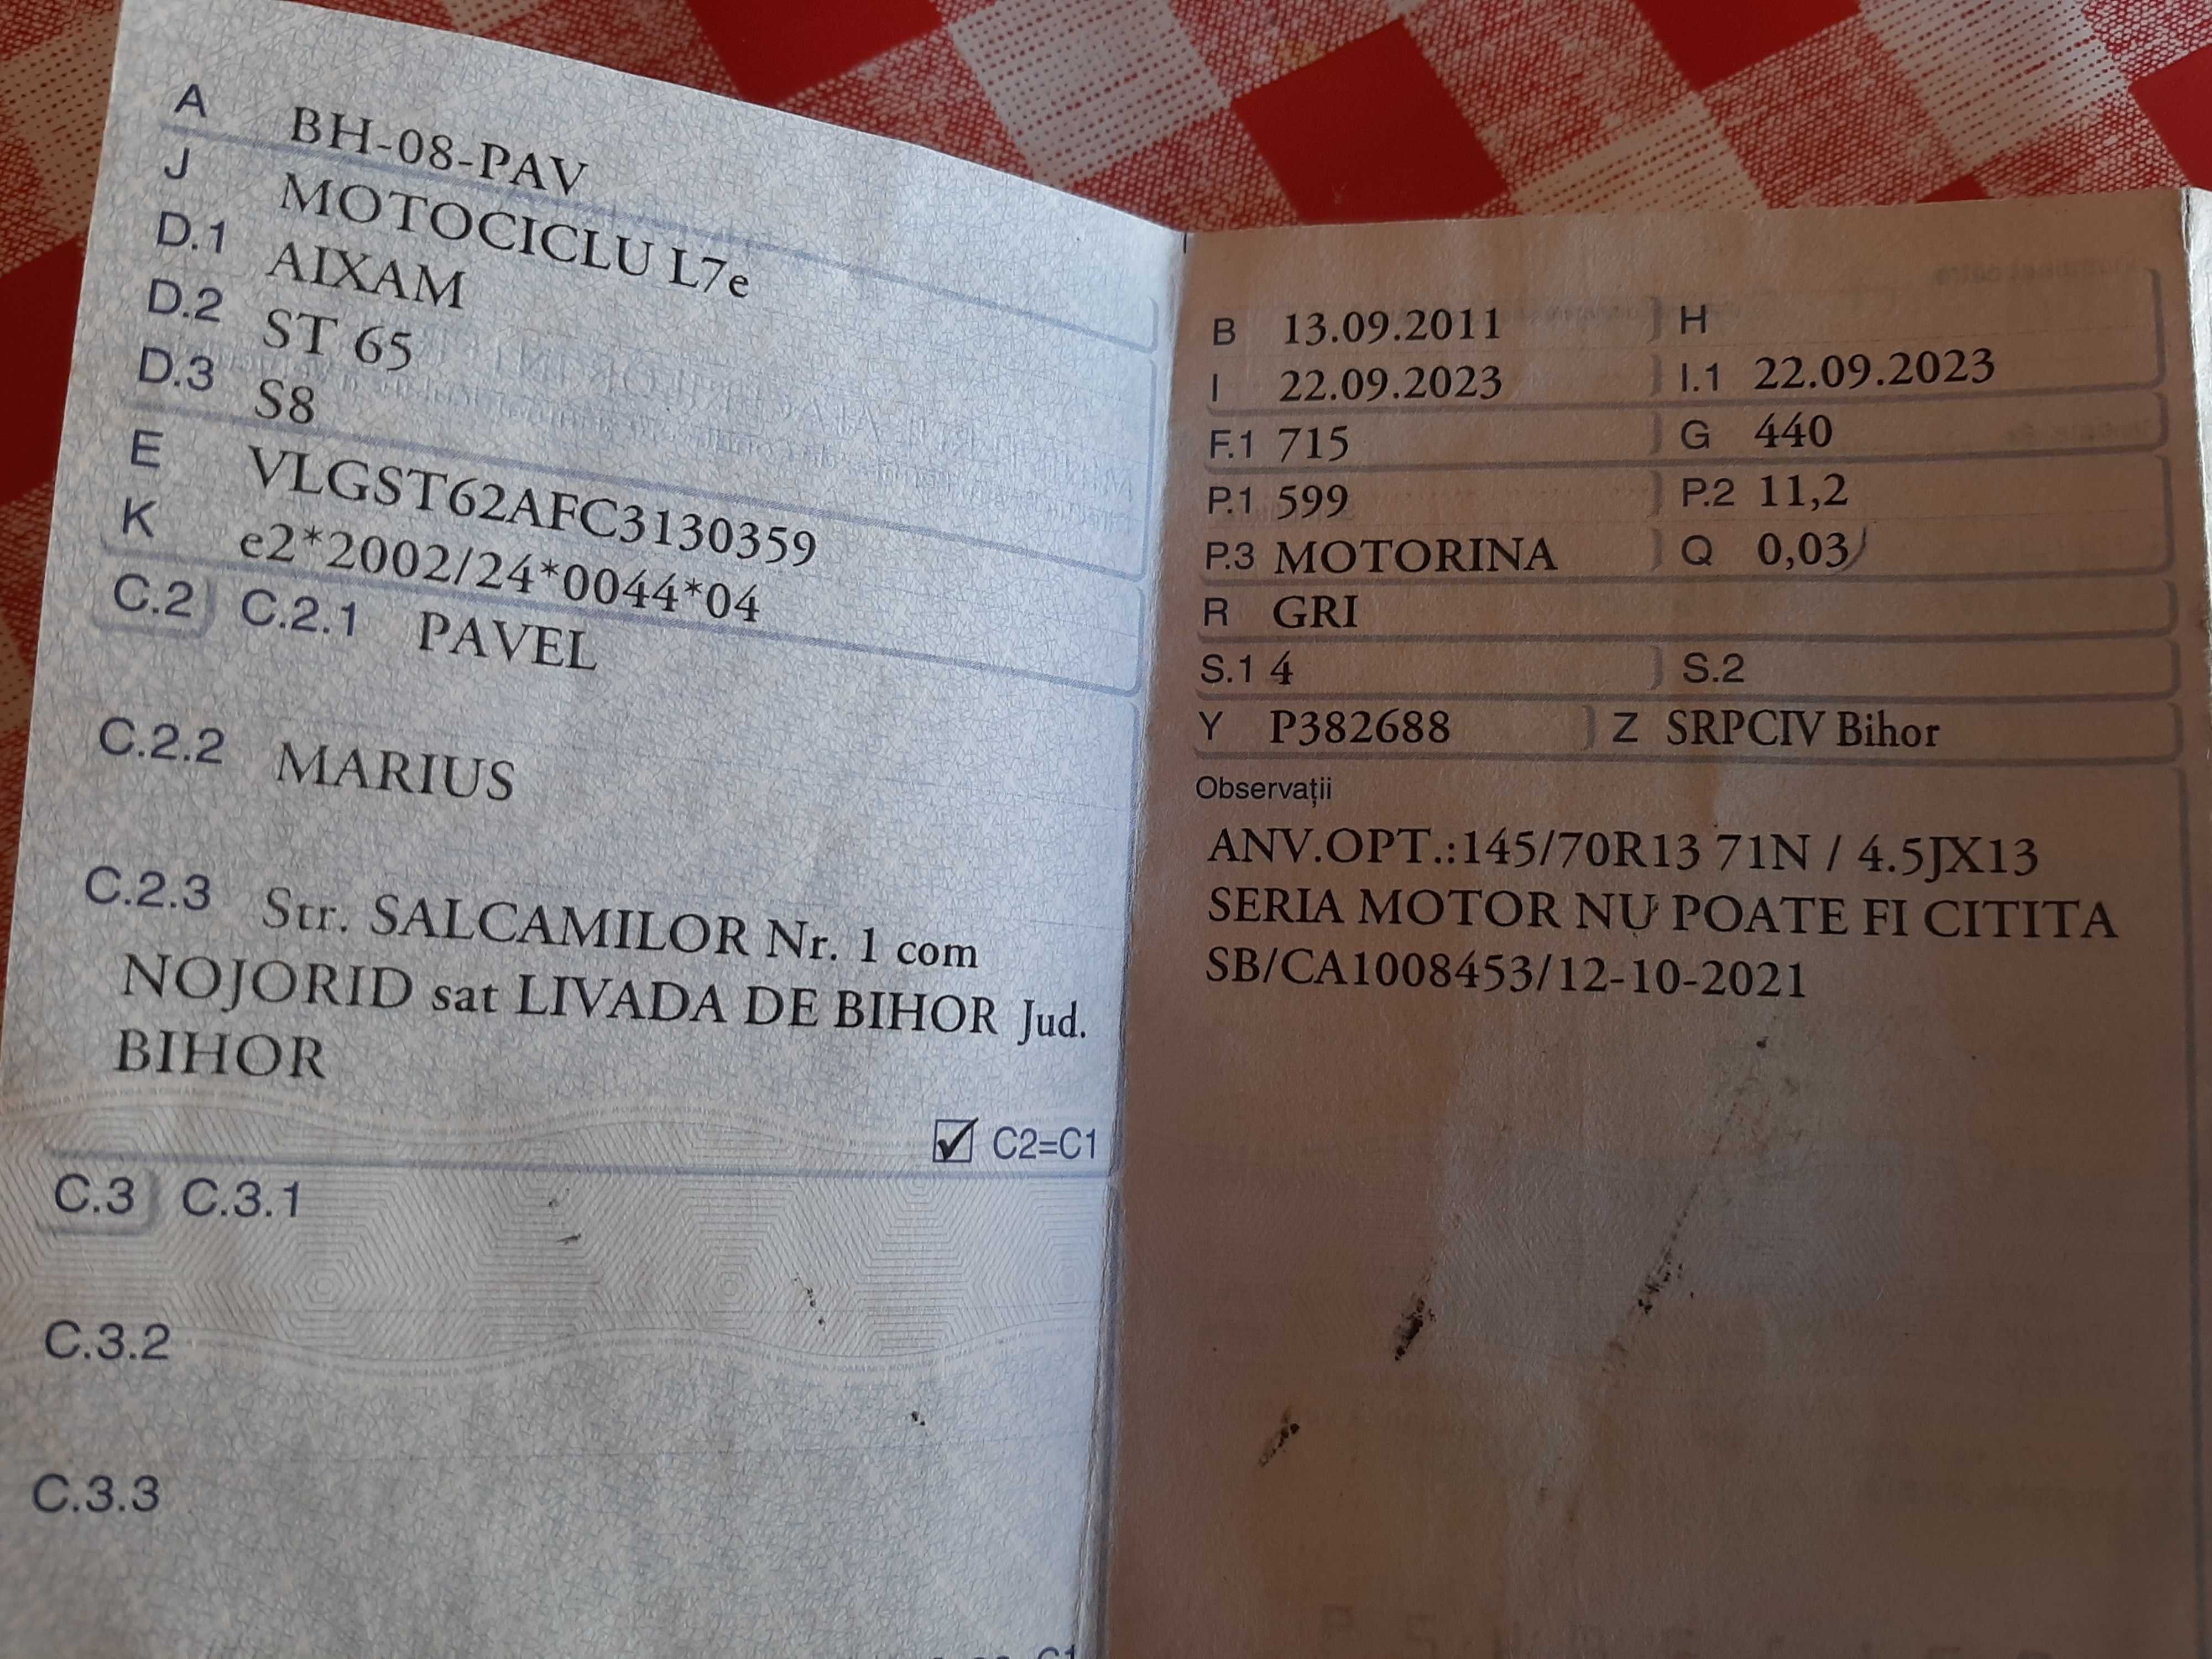 A BH-08-PAV
J MOTOCICLU L7e
D.1 AIXAM
D.2 ST 65
D.3 S8
E VLGST62AFC3130359
K e2*2002/24*0044*04
C.2 C.2.1 PAVEL
C.2.2 MARIUS
C.2.3 Str. SALCAMILOR Nr. 1 com
NOJORID sat LIVADA DE BIHOR Jud.
BIHOR
C2=C1
C.3 C.3.1
C.3.2
C.3.3
B 13.09.2011 H
I 22.09.2023 I.1 22.09.2023
F.1 715 G 440
P.1 599 P.2 11,2
P.3 MOTORINA Q 0,03
R GRI
S.1 4 S.2
Y P382688 Z SRPCIV Bihor
Observații
ANV.OPT.:145/70R13 71N / 4.5JX13
SERIA MOTOR NU POATE FI CITITA
SB/CA1008453/12-10-2021